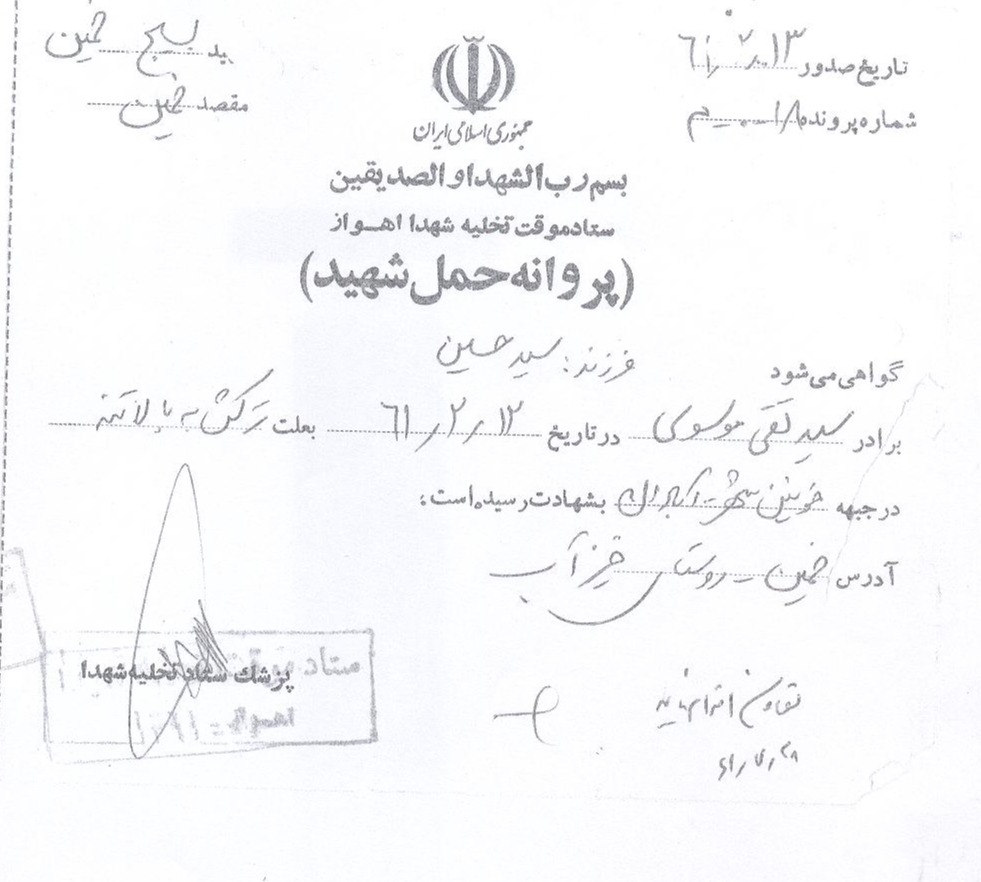 تاریخ صدور ۶۱/۲/۱۳
شماره پرونده
ید بسیج خمین
مقصد خمین
جمهوری اسلامی ایران
بسم رب الشهداو الصدیقین
ستاد موقت تخلیه شهدا اهواز
(پروانه حمل شهید)
گواهی می شود فرزند: سید حسین
برادر سید تقی موسوی در تاریخ ۶۱/۲/۱۲ بعلت ترکش به بالا تنه
در جبهه خونین شهر بشهادت رسیده است،
آدرس خمین - روستای خرز آب
پزشک ستاد تخلیه شهدا
ستاد
اهواز
تعاون